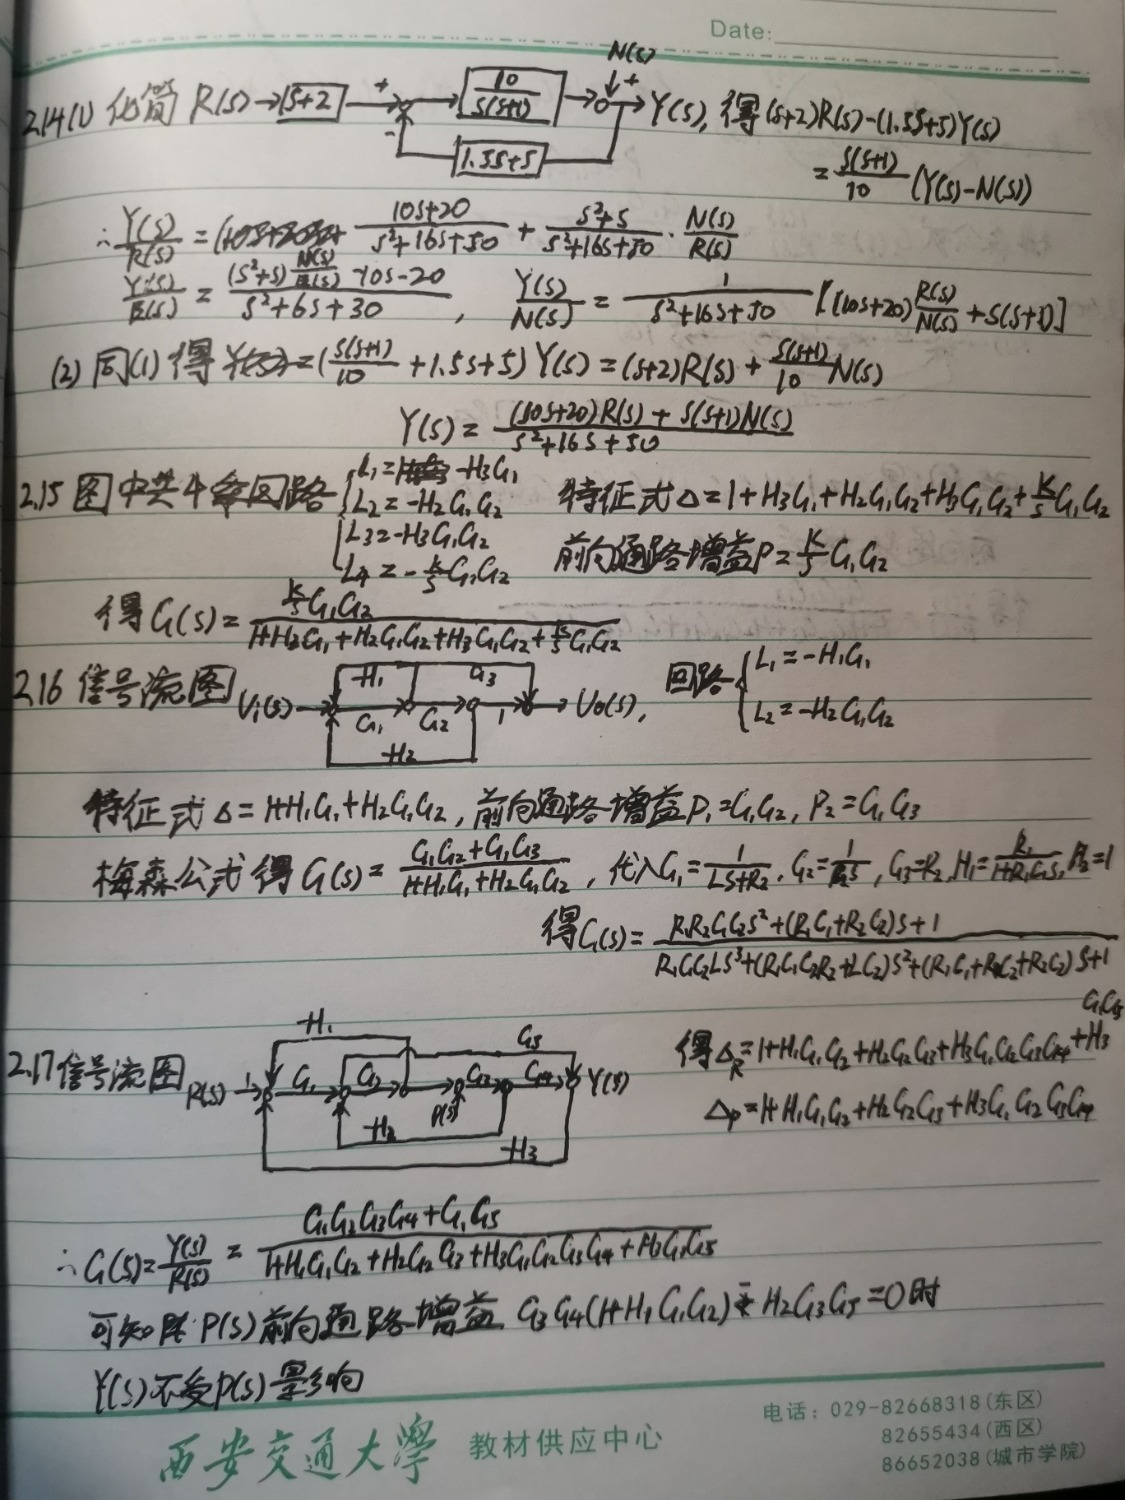 Date:
2.14(1) 化简 R(s)→[s+2] + - 10/(s(s+1)) N(s) + →Y(s), 得(s+2)R(s)-(1.5s+5)Y(s)
1.5s+5
= s(s+1)/10 (Y(s)-N(s))
∴ Y(s)/R(s) = (10s+20)/(s²+16s+50) + (s²+s)/(s²+16s+50) · N(s)/R(s)
Y(s)/E(s) = ((s²+s) N(s)/E(s) -10s-20)/(s²+6s+30), Y(s)/N(s) = 1/(s²+16s+50) [(10s+20) R(s)/N(s) + s(s+1)]
(2) 同(1) 得 (s(s+1)/10 + 1.5s+5) Y(s) = (s+2)R(s) + s(s+1)/10 N(s)
Y(s) = ((10s+20)R(s) + s(s+1)N(s))/(s²+16s+50)
2.15 图中共4条回路 L₁ = -H₃G₁
L₂ = -H₂G₁G₂
L₃ = -H₃G₁G₂
L₄ = -K/s G₁G₂
特征式 Δ = 1+H₃G₁+H₂G₁G₂+H₃G₁G₂+K/s G₁G₂
前向通路增益 P = K/s G₁G₂
得 G(s) = (K/s G₁G₂)/(1+H₃G₁+H₂G₁G₂+H₃G₁G₂+K/s G₁G₂)
2.16 信号流图 Ui(s) -H₁ G₃ G₁ G₂ 1 -H₂ → Uo(s), 回路 L₁ = -H₁G₁
L₂ = -H₂G₁G₂
特征式 Δ = 1+H₁G₁+H₂G₁G₂, 前向通路增益 P₁ = G₁G₂, P₂ = G₁G₃
梅森公式得 G(s) = (G₁G₂+G₁G₃)/(1+H₁G₁+H₂G₁G₂), 代入 G₁ = 1/(Ls+R₂), G₂ = 1/(C₂s), G₃ = R₂, H₁ = R₁/(1+R₁C₁s), H₂ = 1
得 G(s) = (R₁R₂C₁C₂s²+(R₁C₁+R₂C₂)s+1)/(R₁C₁C₂Ls³+(R₁C₁C₂R₂+LC₂)s²+(R₁C₁+R₁C₂+R₂C₂)s+1)
2.17 信号流图 R(s) 1 -H₁ G₅ G₁ G₂ P(s) G₃ G₄ Y(s) -H₂ -H₃
得 Δ_R = 1+H₁G₁G₂+H₂G₂G₃+H₃G₁G₂G₃G₄+H₃G₁G₅
Δp = 1+H₁G₁G₂+H₂G₂G₃+H₃G₁G₂G₃G₄
∴ G(s) = Y(s)/R(s) = (G₁G₂G₃G₄+G₁G₅)/(1+H₁G₁G₂+H₂G₂G₃+H₃G₁G₂G₃G₄+H₃G₁G₅)
可知 P(s) 前向通路增益 G₃G₄(1+H₁G₁G₂) H₂G₃G₅ = 0 时
Y(s) 不受 P(s) 影响
西安交通大学 教材供应中心
电话：029-82668318(东区)
82655434(西区)
86652038(城市学院)